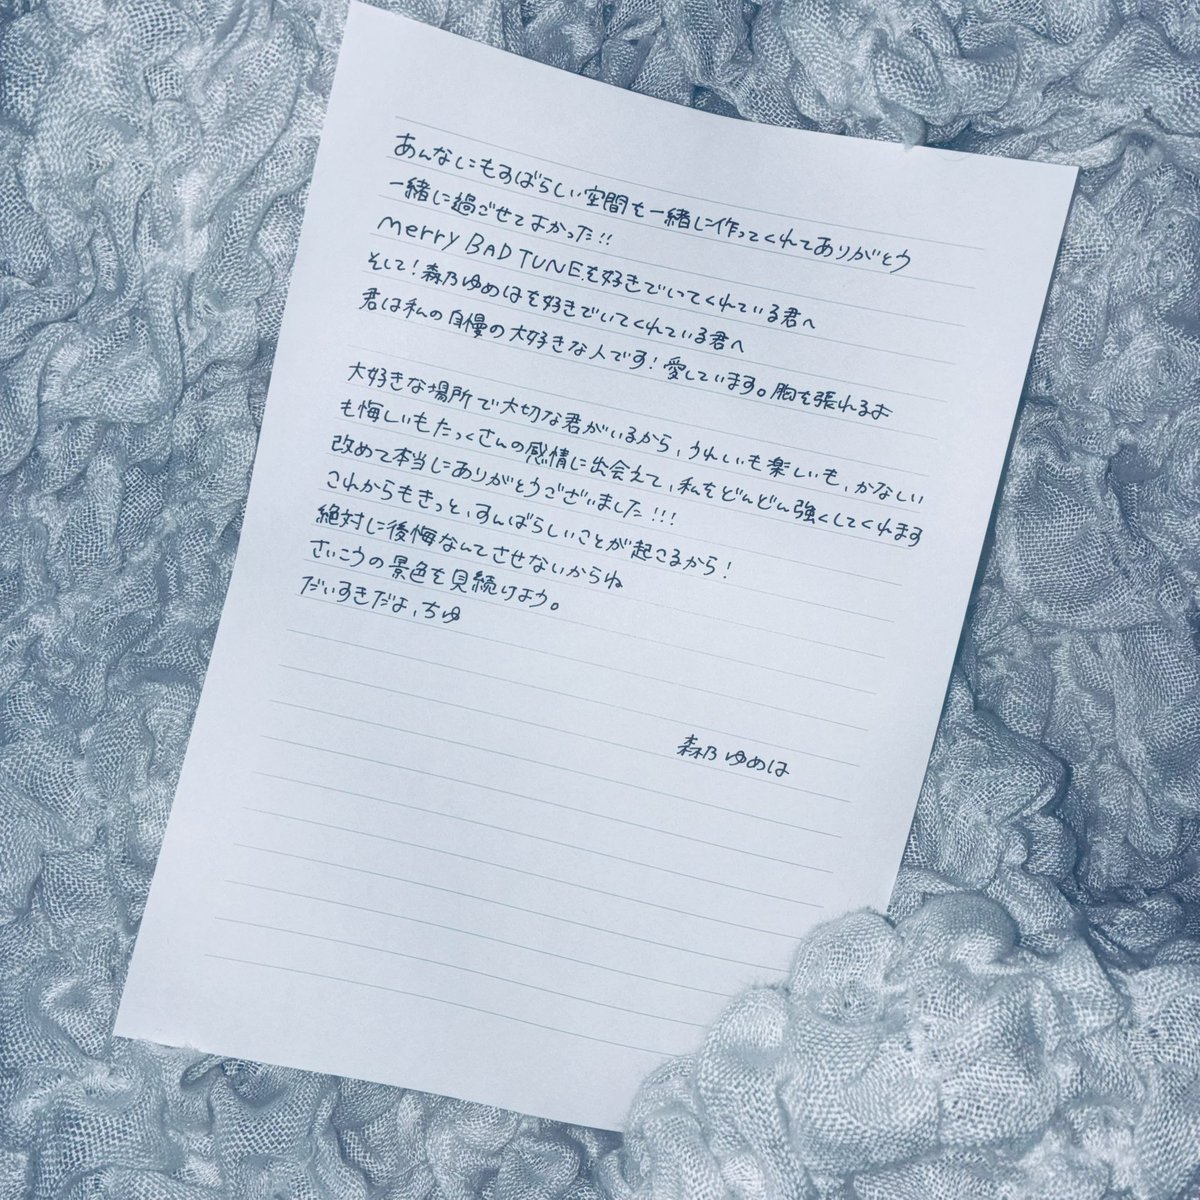 あんなにもすばらしい空間を一緒に作ってくれてありがとう
一緒に過ごせてよかった!!
merry BAD TUNE.を好きでいてくれている君へ
そして!森乃ゆめはを好きでいてくれている君へ
君は私の自慢の大好きな人です!愛しています。胸を張れるよ
大好きな場所で大切な君がいるから、うれしいも楽しいも、かなしい
も悔しいもたっくさんの感情に出会えて、私をどんどん強くしてくれます
改めて本当にありがとうございました!!!
これからもきっと、すんばらしいことが起こるから!
絶対に後悔なんてさせないからね
さいこうの景色を見続けよう。
だいすきだよ、ちゆ
森乃ゆめは